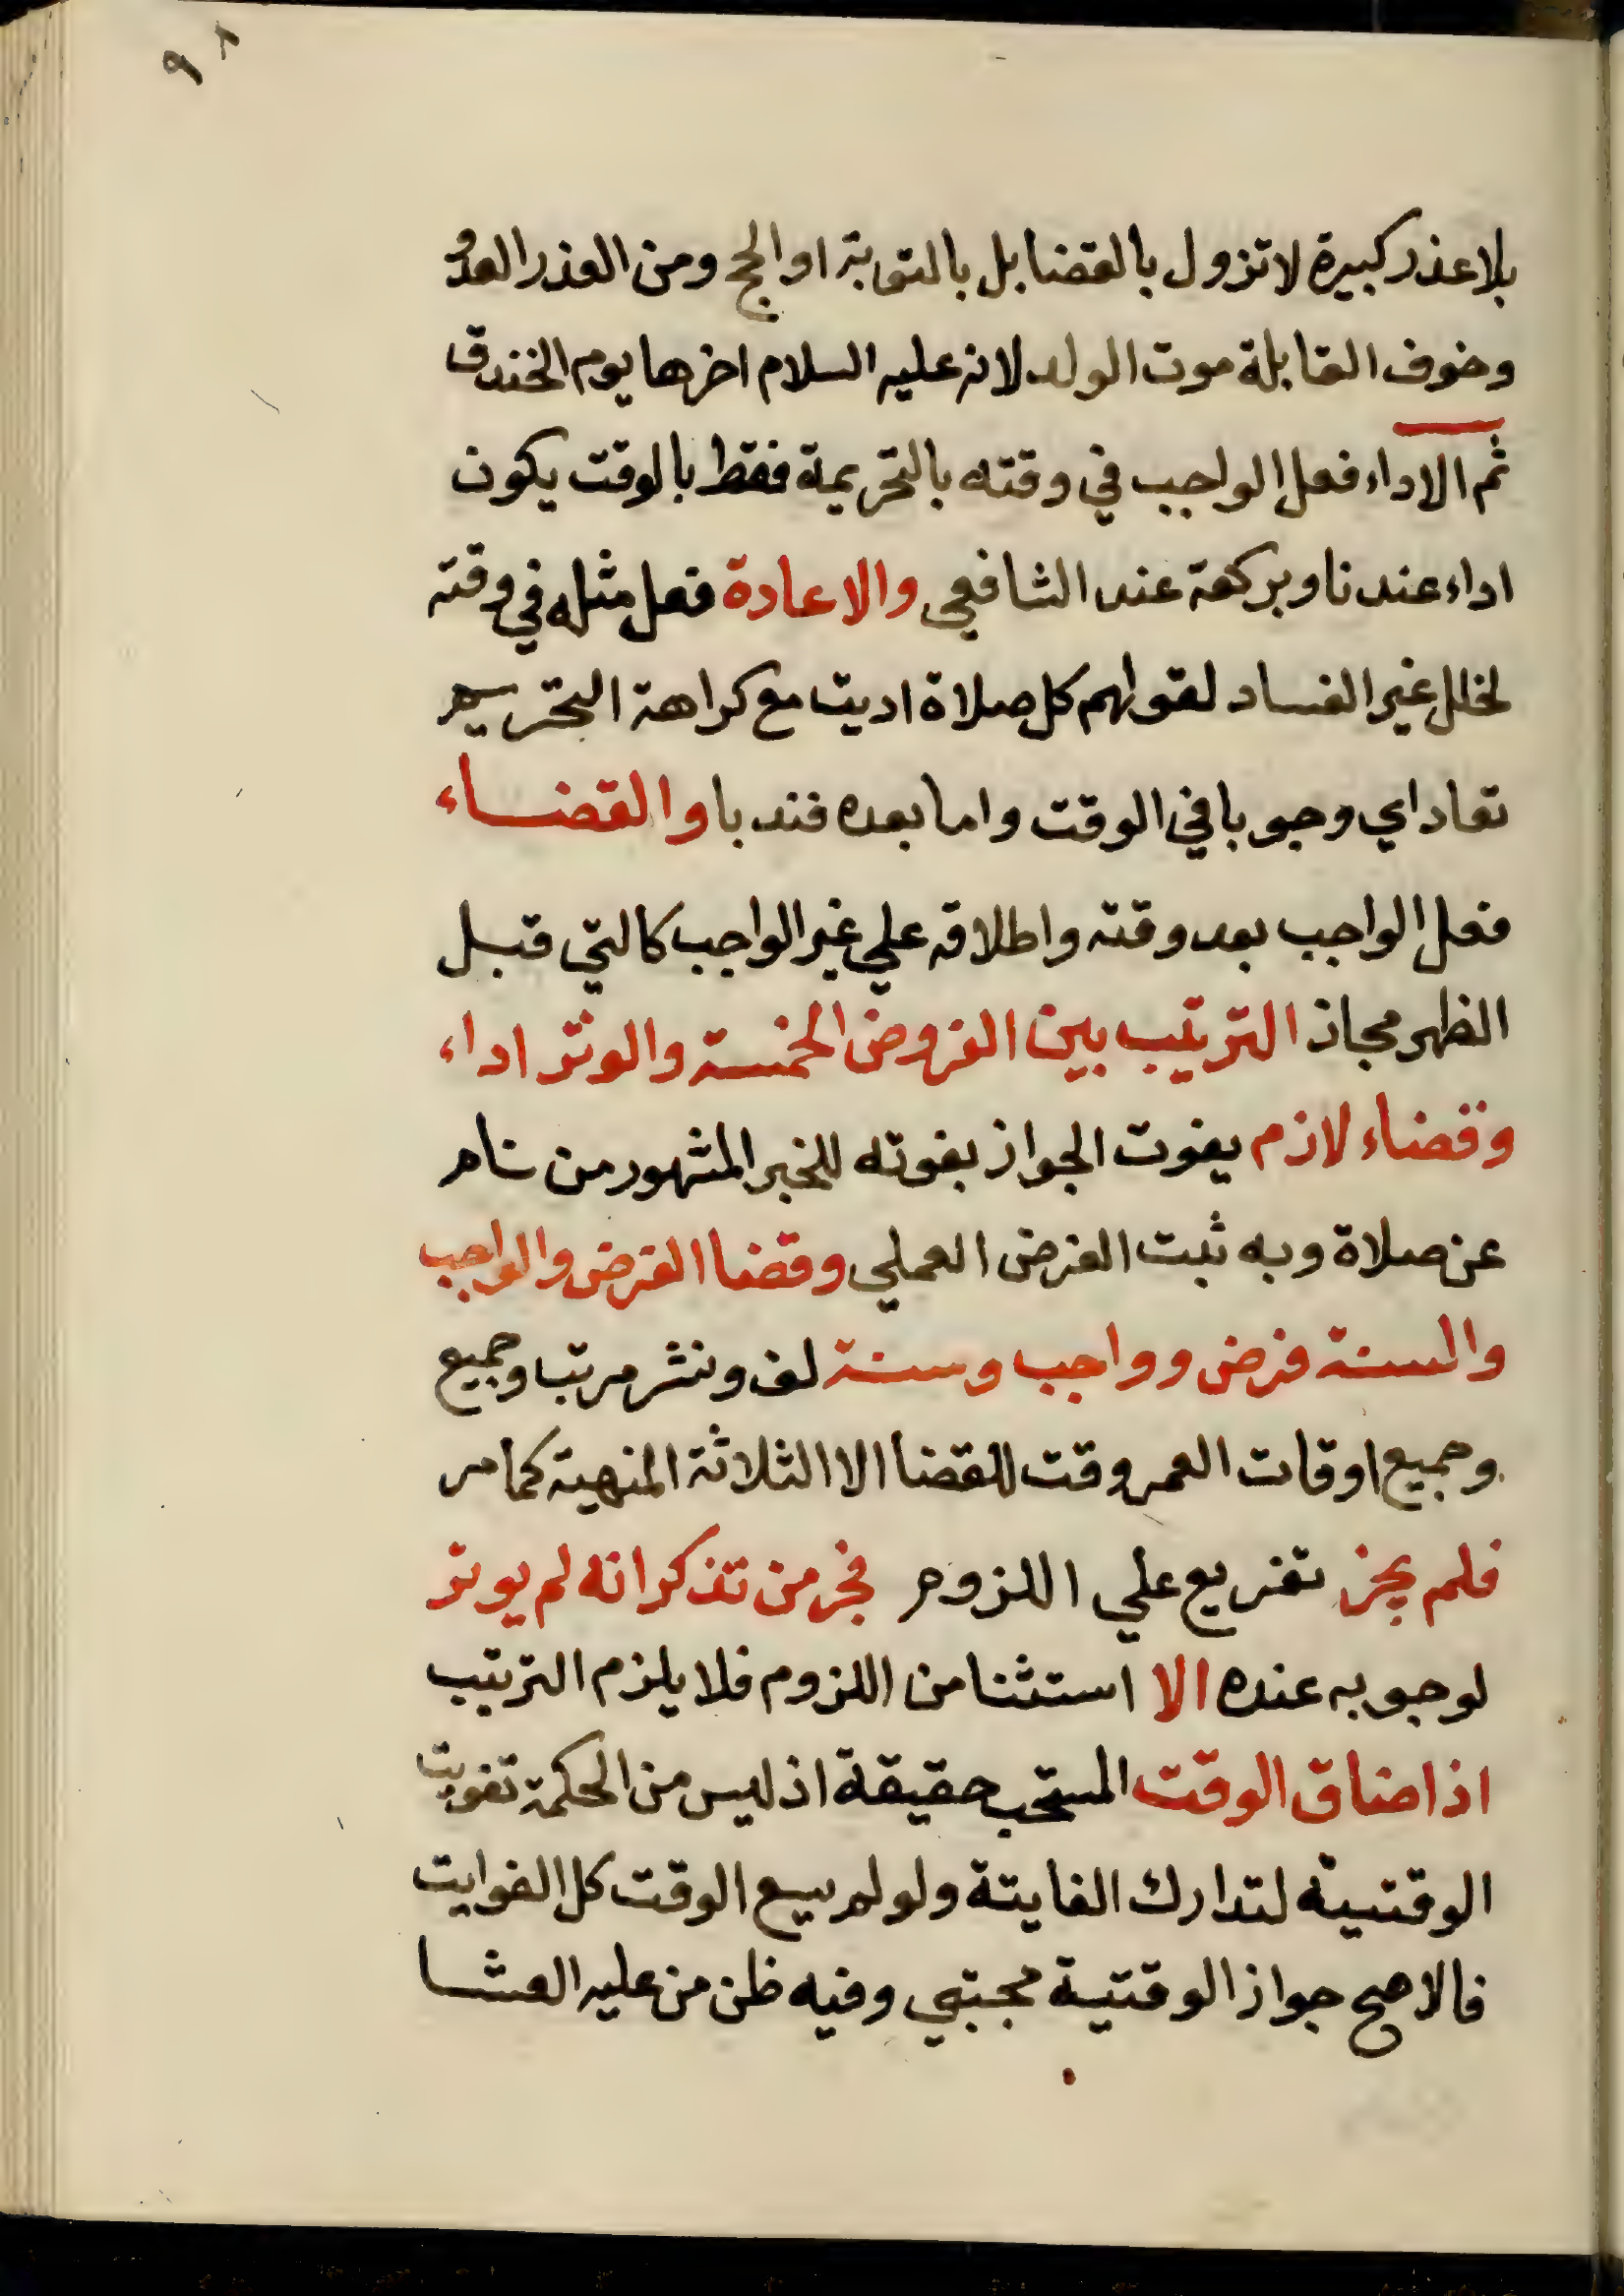 ٩٨
بلا عذر كبيرة لا تزول بالقضا بل بالتوبة او الحج ومن العذر العدو
وخوف القابلة موت الولد لانه عليه السلام اخرها يوم الخندق
ثم الاداء فعل الواجب في وقته بالتحريمة فقط بالوقت يكون
اداء عندنا وبركعة عند الشافعي والاعادة فعل مثله في وقته
لخلل غير الفساد لقولهم كل صلاة اديت مع كراهة التحريم
تعاد اي وجوبا في الوقت واما بعده فندبا والقضاء
فعل الواجب بعد وقته واطلاقه علي غير الواجب كالتي قبل
الظهر مجاز الترتيب بين الفروض الخمسة والوتر اداء
وقضاء لازم يفوت الجواز بفوته للخبر المشهور من نام
عن صلاة وبه ثبت الفرض العملي وقضا الفرض والواجب
والسنة فرض وواجب وسنة لف ونشر مرتب وجميع
وجميع اوقات العمر وقت للقضا الا الثلاثة المنهية كما مر
فلم يجز تفريع علي اللزوم فجر من تذكر انه لم يوتر
لوجوبه عنده الا استثنا من اللزوم فلا يلزم الترتيب
اذا ضاق الوقت المستحب حقيقة اذ ليس من الحكمة تفويت
الوقتية لتدارك الفايتة ولو لم يسع الوقت كل الفوايت
فالاصح جواز الوقتية مجتبي وفيه ظن من عليه العشا